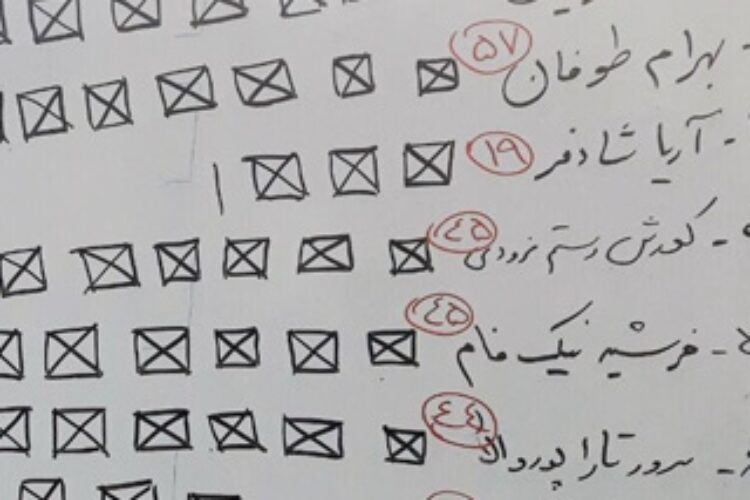 بهرام طوفان ۵۷
- آریا شادفر ۱۹
- کورش رستم ۴۵
- فرشید نیک فام ۴۵
- سرور تارا پوروالا ۴۴